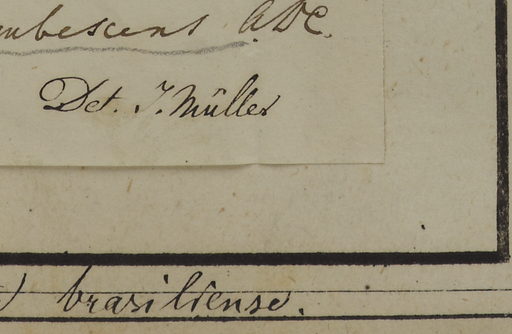 ubescens ADC.
Det. J. Müller
) brasiliense.